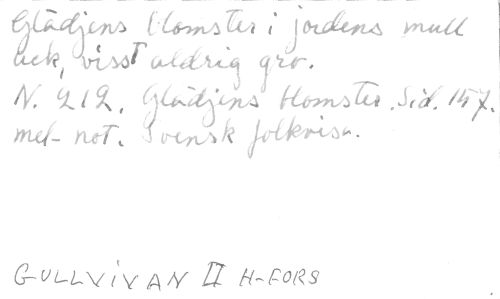 Glädjens blomster i jordens mull
ack, visst aldrig gro.
N. 212. Glädjens blomster. Sid. 157.
mel- not. Svensk folkvisa.
GULLVIVAN II H-FORS